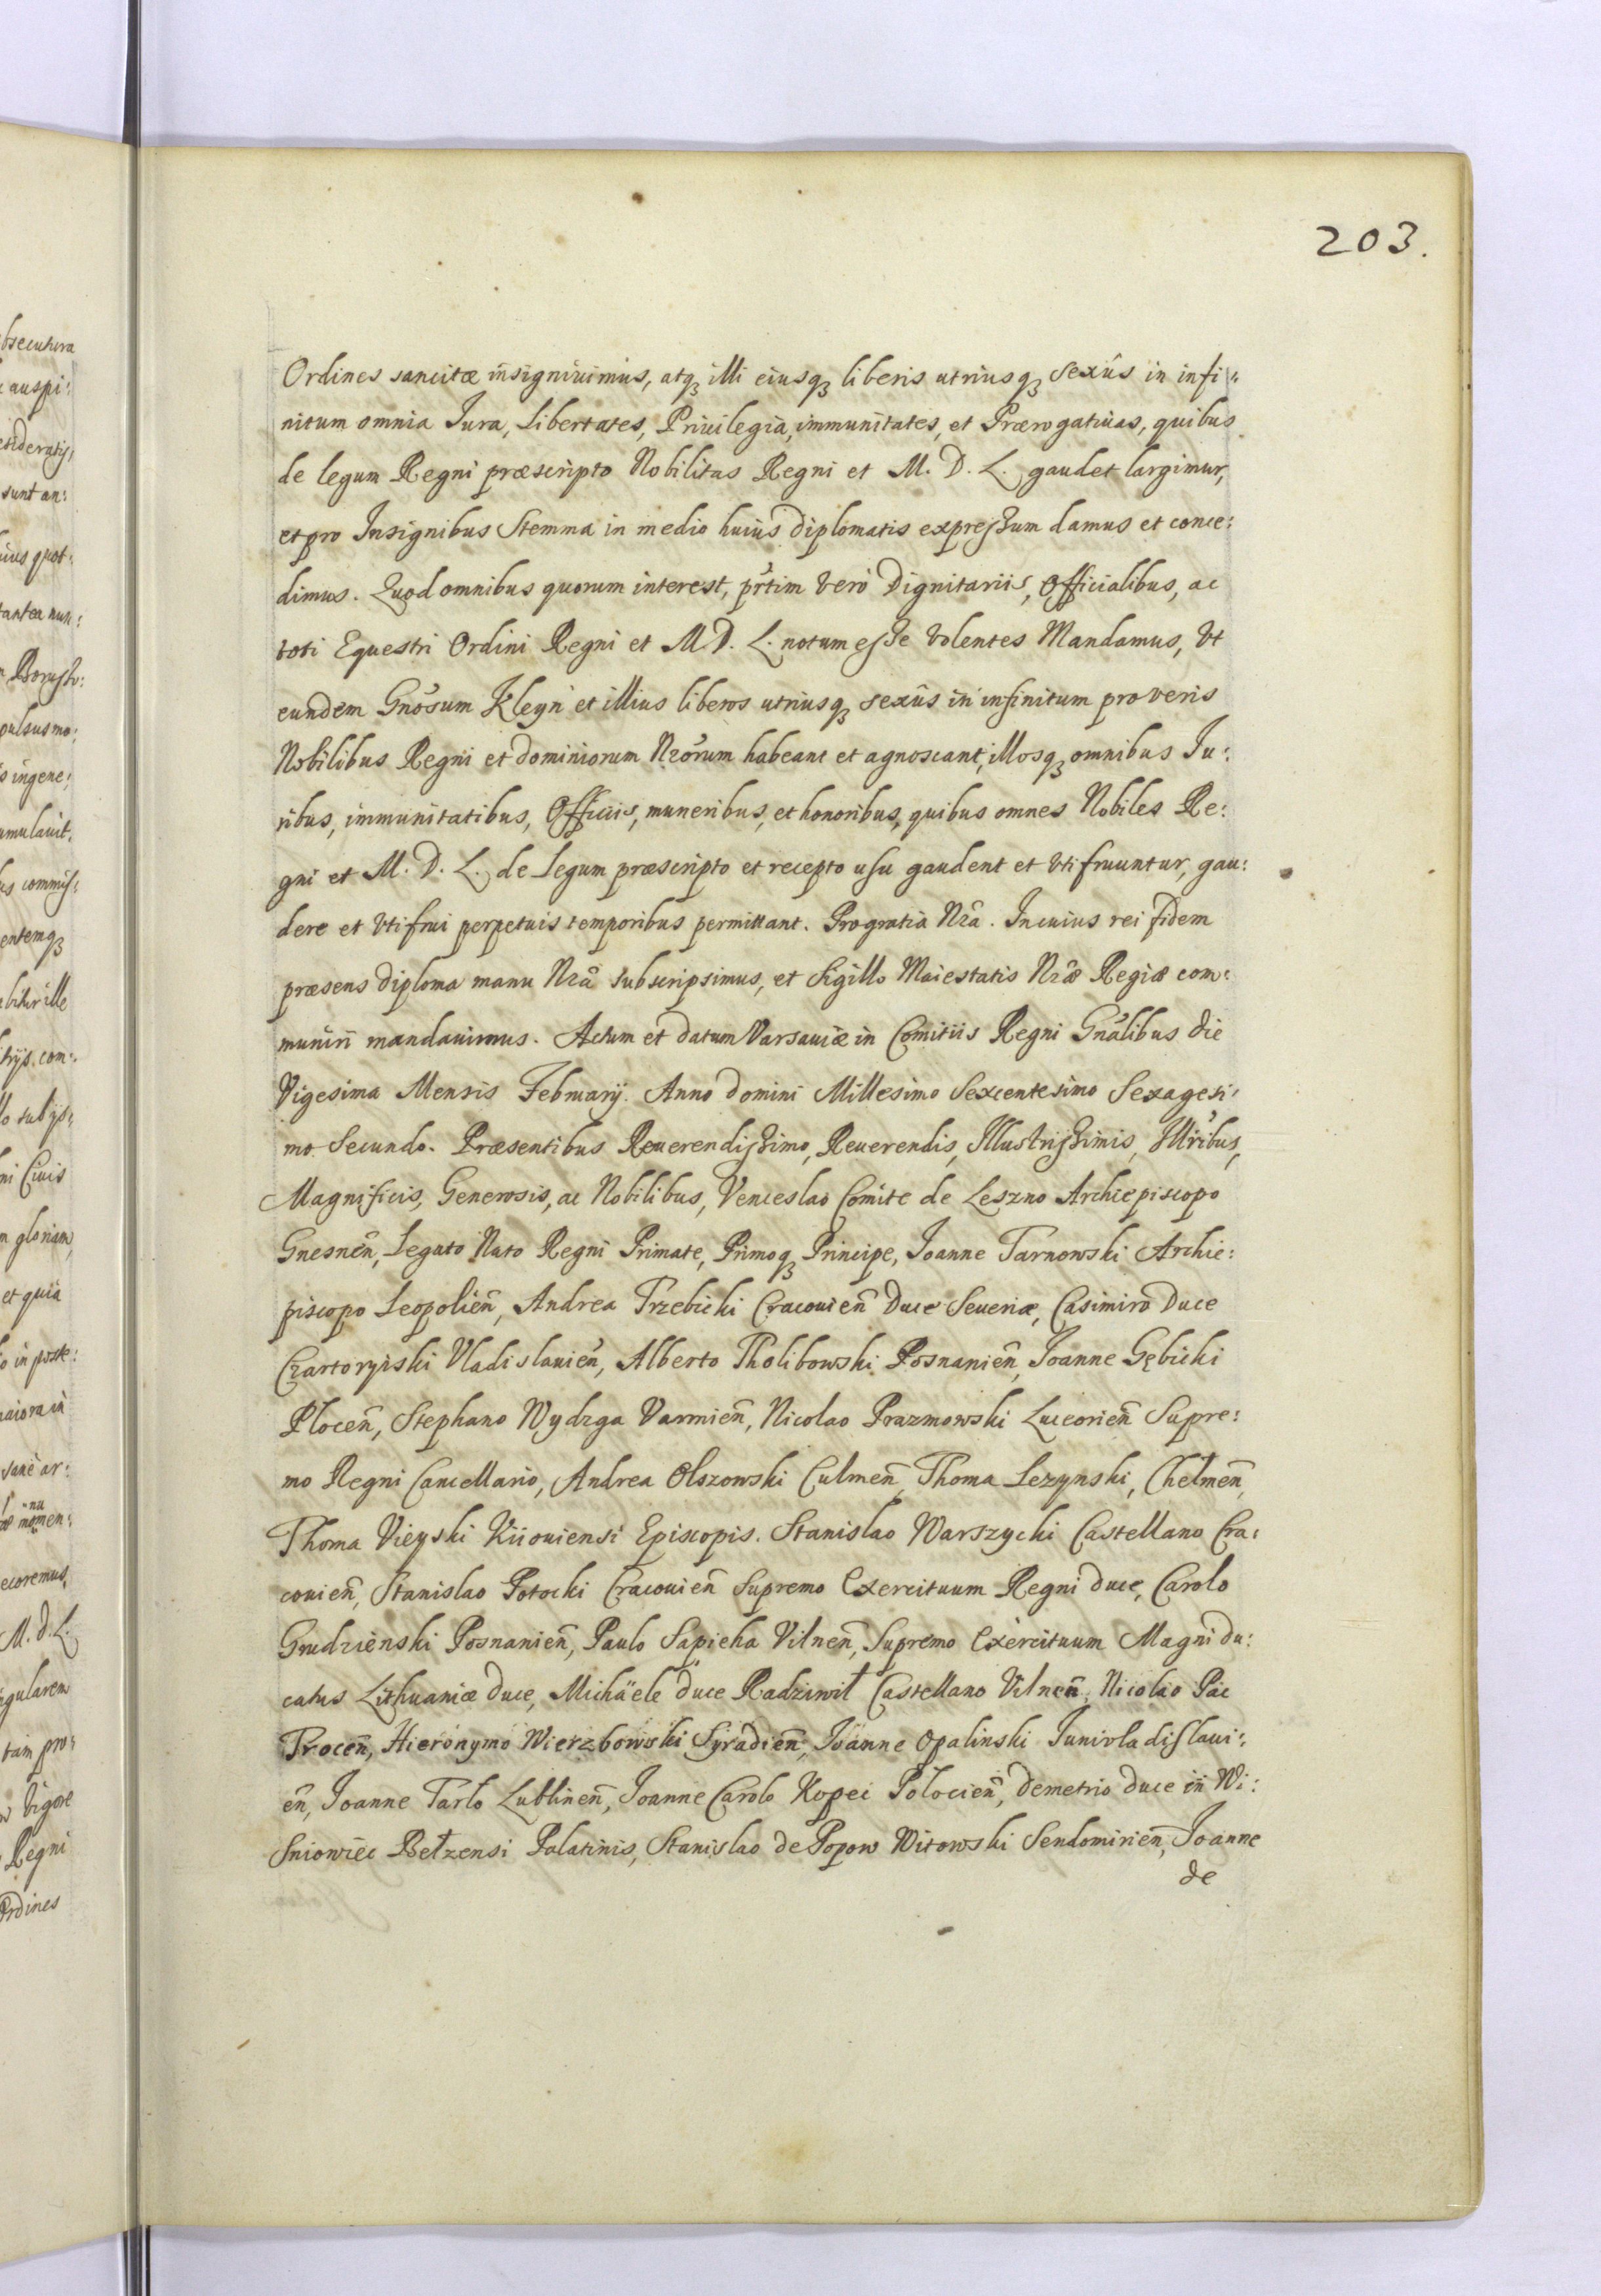 203.
Ordines sancitæ insigniuimus, atqꝫ illi eiusqꝫ liberis utriusqꝫ sexûs in infi:
nitum omnia Iura, Libertates, Priuilegia, immunitates, et Prærogatiuas, quibus
de legum Regni præscripto Nobilitas Regni et M. D. L. gaudet largimur,
et pro Insignibus Stemma in medio huius diplomatis expreſsum damus et conce:
dimus. Quod omnibus quorum interest, pr̃tim verò Dignitariis, Officialibus, ac
toti Equestri Ordini Regni et M D. L. notum eſse volentes Mandamus, Vt
eundem Gnõsum Kleyn et illius liberos utriusqꝫ sexûs in infinitum pro veris
Nobilibus Regni et dominiorum Nrõrum habeant et agnoscant, illosqꝫ omnibus Iu:
ribus, immunitatibus, Officiis, muneribus, et honoribus, quibus omnes Nobiles Re:
gni et M. D. L. de legum præscripto et recepto uſu gaudent et Vti fruuntur, gau:
dere et Vti frui perpetuis temporibus permittant. Pro gratia Nrã. In cuius rei fidem
præsens diploma manu Nrã subscripsimus, et Sigillo Maiestatis Nræ̃ Regiæ com:
muniri mandauimus. Actum et datum Varsauiæ in Comitiis Regni Gnãlibus die
Vigesima Mensis Februarij. Anno domini Millesimo Sexcentesimo Sexagesi:
mo Secundo. Præsentibus Reuerendiſsimo, Reuerendis, Illustriſsimis, Illr̃ibus,
Magnificis, Generosis, ac Nobilibus, Venceslao Comite de Leszno Archiepiscopo
Gnesneñ, Legato Nato Regni Primate, Primoqꝫ Principe, Ioanne Tarnowski Archie:
piscopo Leopolieñ, Andrea Trzebicki Cracouieñ Duce Seueriæ, Casimiro Duce
Czartoryiski Vladislauieñ, Alberto Tholibowski Posnanieñ, Ioanne Gębicki
Ploceñ, Stephano Wydzga Varmieñ, Nicolao Prazmowski Luceorieñ Supre:
mo Regni Cancellario, Andrea Olszowski Culmeñ, Thoma Lezynski, Chełmeñ,
Thoma Vieyski Kiiouiensi Episcopis. Stanislao Warszycki Castellano Cra:
couieñ, Stanislao Potocki Cracouieñ Supremo Exercituum Regni duce, Carolo
Grudzienski Posnanieñ, Paulo Sapieha Vilneñ, Supremo Exercituum Magni du:
catus Lithuaniæ duce, Michäele duce Radziwił Castellano Vilneñ, Nicolao Pac
Troceñ, Hieronymo Wierzbowski Syradieñ, Ioanne Opalinski Iuniuladiſlaui:
eñ, Ioanne Tarło Lublineñ, Ioanne Carolo Kopec Polocieñ, Demetrio duce in Wi:
ſniowiec Bełzensi Palatinis, Stanislao de Popow Witowski Sendomirieñ, Ioanne
de